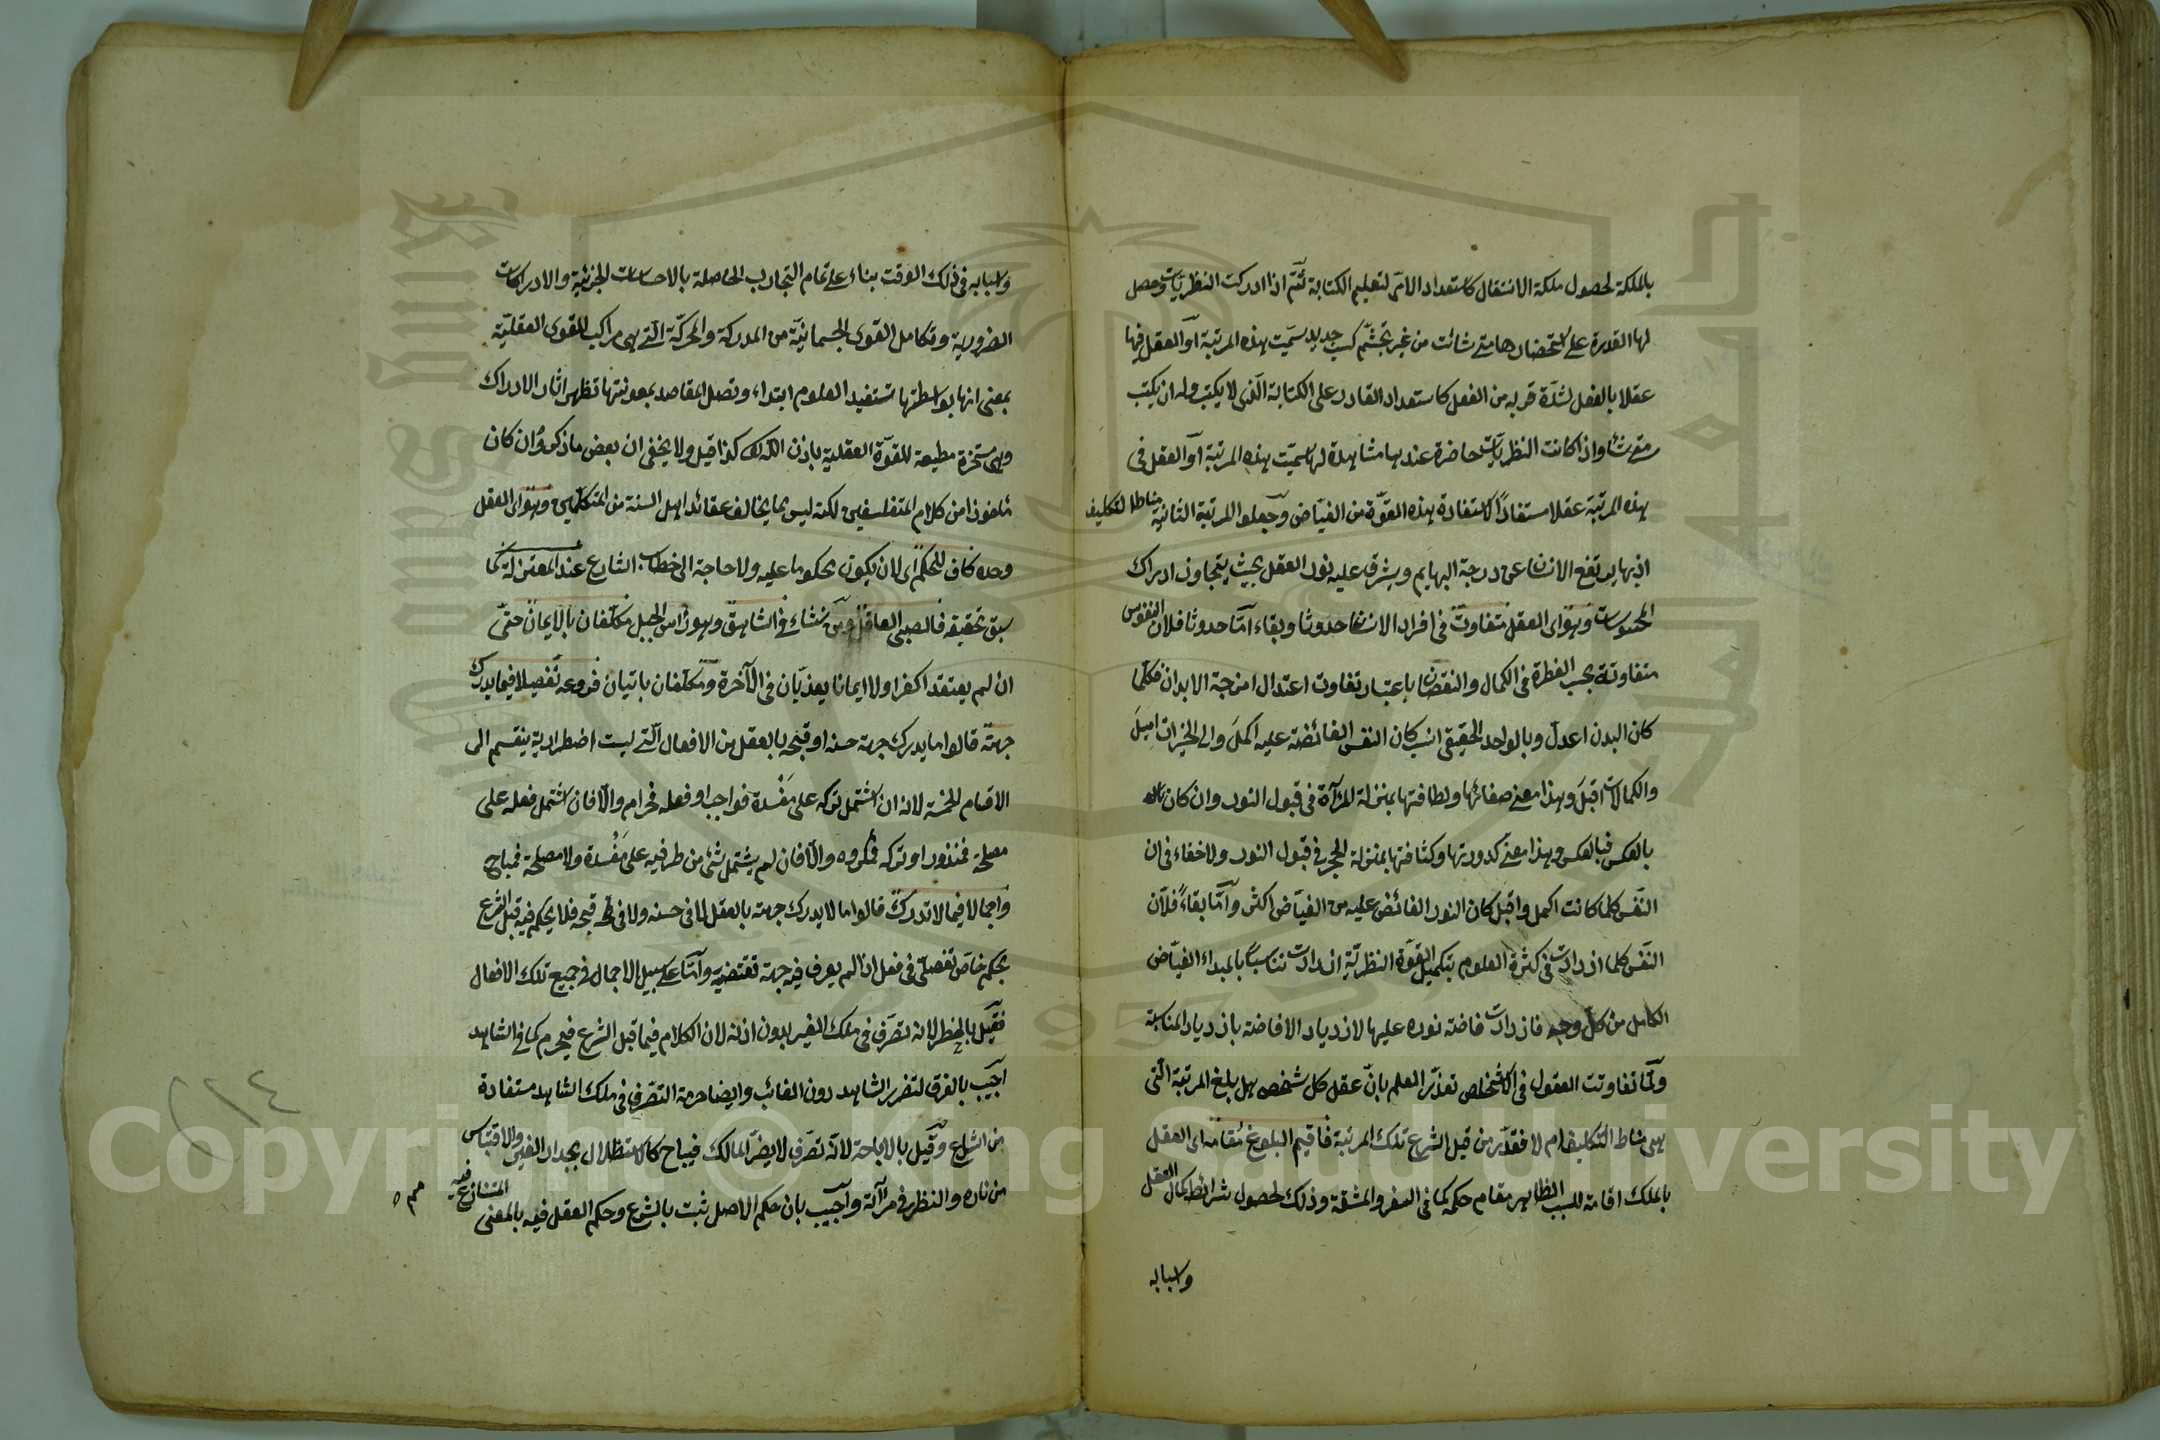 بالملكة لحصول ملكة الانتقال كاستعداد الامى لتعليم الكتابة ثم اذا ادركت النظريات وحصل
لها القدرة على استحضارها متى شائت من غير تجشم كسب جديد سميت بهذه المرتبة او العقل فيها
عقلا بالفعل لشدة قربه من الفعل كاستعداد القادر على الكتابة الذى لا يكتب وله ان يكتب
متى شاء واذا كانت النظريات حاضرة عندها مشاهدة لها سميت بهذه المرتبة او العقل فى
هذه المرتبة عقلا مستفادا لاستفادة هذه القوة من الفياض وجعلوا المرتبة الثانية مناطا لتكليف
اذ بها يرتفع الانسان عن درجة البهايم ويشرق عليه نور العقل بحيث يتجاوز ادراك
المحسوسات وهو اى العقل متفاوت فى افراد الانسان حدوثا وبقاء اما حدوثا فلان النفوس
متفاوتة بحسب الفطرة فى الكمال والنقصان باعتبار تفاوت اعتدال امزجة الابدان فكلما
كان البدن اعدل وبالواحد الحقيقى انسب كان النفس الفائضة عليه اكمل والى الخيرات اميل
والكمالات اقبل وهذا معنى صفائها ولطافتها بمنزلة المرآة فى قبول النور وان كان
بالعكس فبالعكس وهذا معنى كدورتها وكثافتها بمنزلة الحجر فى قبول النور ولا خفاء فى ان
النفس كلما كانت اكمل واقبل كان النور الفائض عليه من الفياض اكثر واما بقاء فلان
النفس كلما ازدادت فى كثرة العلوم بتكميل القوة النظرية ازدادت تناسبا بالمبداء الفياض
الكامل من كل وجه فازدادت فاضة نوره عليها لازدياد الافاضة بازدياد المناسبة
ولما تفاوتت العقول فى الاشخاص تعذر العلم بان عقل كل شخص هل بلغ المرتبة التى
هى مناط التكليف ام لا فقدر من قبل الشرع تلك المرتبة فاقيم البلوغ مقامه اى العقل
بالملك اقامة للسبب الظاهر مقام حكمه كما فى السفر والمشقة وذلك لحصول شرائط كمال العقل
واسبابه
واسبابه فى ذلك الوقت بناء على تمام التجارب الحاصلة بالاحساسات الجزئية والادراكات
الضرورية وتكامل القوى الجسمانية من المدركة والمحركة التى هى مراكب للقوى العقلية
بمعنى انها بواسطتها تستفيد العلوم ابتداء وتصل المقاصد بمعونتها تظهر اثار الادراك
وهى مسخرة مطيعة للقوة العقلية باذن الله كذا قيل ولا يخفى ان بعض ما ذكر وان كان
ماخوذا من كلام المتفلسفين لكنه ليس مما يخالف عقائد اهل السنة من المتكلمين وهو اى العقل
وحده كاف للحكم اى لان يكون محكوما عليه ولا حاجة الى خطاب الشارع عند المعتزلة كما
سبق تحقيقه فالصبى العاقل ومن نشاء فى الشاهق وهو راس الجبل مكلفان بالايمان حتى
ان لم يعتقد اكفرا ولا ايمانا يعذبان فى الآخرة ومكلفان باتيان فروعه تفصيلا فيما يدرك
جهته قالوا ما يدرك جهة حسنه او قبحه بالعقل من الافعال التى ليست اضطرارية ينقسم الى
الاقسام الخمسة لانه ان اشتمل تركه على مفسدة فواجب او فعله فحرام والا فان اشتمل فعله على
مصلحة فمندوب او تركه فمكروه والا فان لم يشتمل شئ من طرفيه على مفسدة ولا مصلحة فمباح
واجمالا فيما لا تدرك قالوا ما لا يدرك جهته بالعقل لا فى حسنه ولا فى قبحه فلا يحكم فيه قبل الشرع
بحكم خاص تفصيلى فى فعل اذ لم يعرف فيه جهة تقتضيه واما على سبيل الاجمال فى جميع تلك الافعال
فقيل بالحظر لانه تصرف فى ملك الغير بدون اذنه لان الكلام فيما قبل الشرع فيحرم كما فى الشاهد
اجيب بالفرق لتضرر الشاهد دون الغائب وايضا حرمة التصرف فى ملك الشاهد مستفادة
من الشارع وقيل بالاباحة لانه تصرف لا يضر المالك فيباح كالاستظلال بجدار الغير والاقتباس
من ناره والنظر فى مرآته واجيب بان حكم الاصل ثبت بالشرع وحكم العقل فيه بالمعنى المتنازع فيه